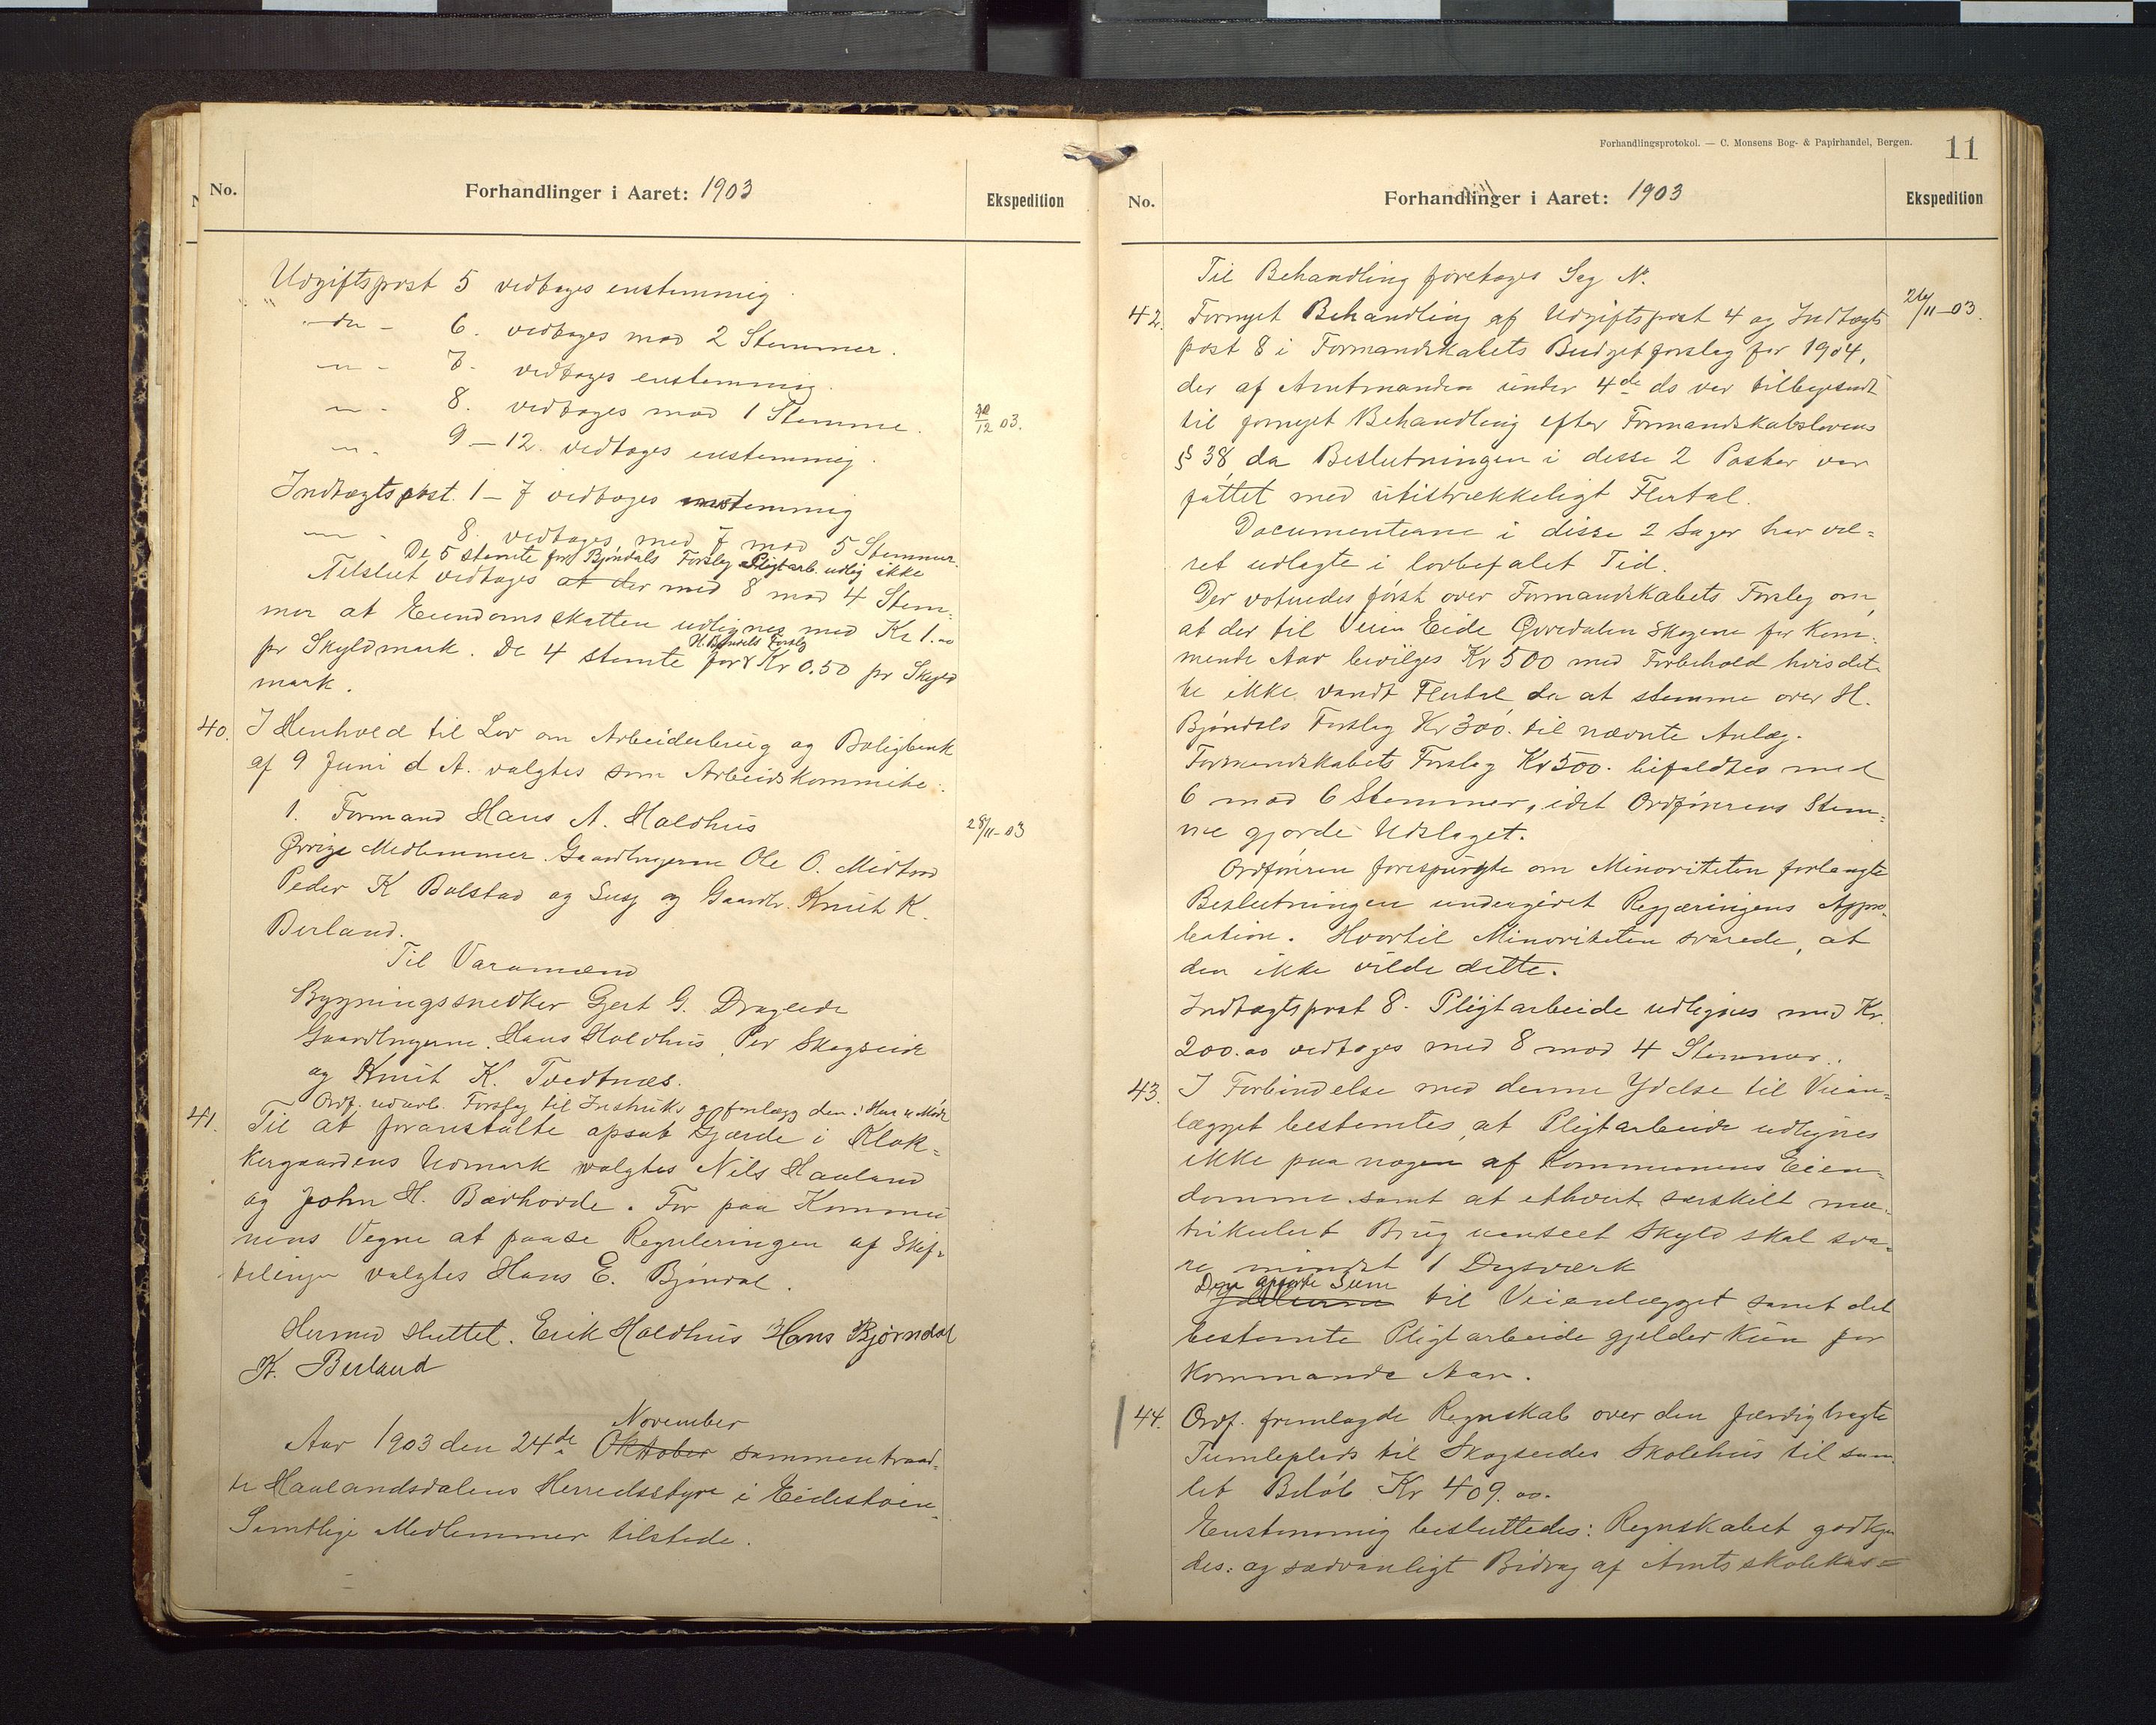 No.
Forhandlinger i Aaret: 1903
Ekspedition
Udgiftspost 5 vedtoges enstemmig.
" - do - 6. vedtoges mod 2 Stemmer.
- " - 7. vedtoges enstemmig.
- " - 8. vedtoges mod 1 Stemme.
12 03.
- " - 9-12. vedtoges enstemmig.
Indtægtspost. 1-7 vedtoges enstemmig
- " - 8. vedtoges med 7 mod 5 Stemmer.
De 5 stemte for Bjøndals Forslag Pligtarb. udlig ikke
Tilslut vedtoges at der med 8 mod 4 Stem-
mer at Eiendomsskatten udlignes med Kr 1.00
pr Skyldmark. De 4 stemte for H. Bjøndals Forslag Kr 0.50 pr Skyld
mark.
40. I Henhold til Lov om Arbeiderbrug og Boligbank
af 9 Juni d A. valgtes som Arbeidskommite:
1. Formand Hans A. Holdhus
28/11-03
Øvrige Medlemmer. Gaardbrugerne Ole O. Midtvad
Peder K Bolstad og Susj og Gaardb. Knut K.
Berland.
Til Varamænd
Bygningssnedker Gjert G. Drageide
Gaardbrugerne. Hans Holdhus, Per Skogseide
og Knut K. Tvedtnæs.
Ordf. udarb. Forslag til Instruks og forelægg den i Her u Møde
41. Til at foranstalte opsat Gjærde i Klok-
kergaardens Udmark valgtes Nils Haaland
og John H. Bævhovde. For paa Kommu
nens Vegne at paase Reguleringen af Skif-
telinjer valgtes Hans E. Bjøndal.
Hermed sluttet. Erik Holdhus Hans Bjørndal
K. Berland
Aar 1903 den 24de Oktober November sammentraad-
te Haalandsdalens Herredsstyre i Eidestøen
Samtlige Medlemmer tilstede.
Forhandlingsprotokol. — C. Monsens Bog- & Papirhandel, Bergen.
11
No.
Forhandlinger i Aaret: 1903
Ekspedition
Til Behandling foretoges Sag No.
42. Fornyet Behandling af Udgiftspost 4 og Indtægts
26/11-03.
post 8 i Formandskabets Budgetforslag for 1904,
der af Amtmanden under 4de ds var tilbagesendt
til fornyet Behandling efter Formandskabslovens
§ 38, da Beslutningen i desse 2 Poster var
fattet med utistrækkeligt Flertal.
Documenterne i disse 2 Sager har væ-
ret udlagte i lovbefalet Tid.
Der votnedes først over Formandskabets Forslag om,
at der til Veien Eide Gjøredalen Skogene for kom-
mende Aar bevilges Kr 500 med Forbehold hvis det-
te ikke vandt Flertal, da at stemme over H.
Bjøndals Forslag Kr 300. til nævnte Anlæg.
Formandskabets Forslag Kr 500. bifaldtes med
6 mod 6 Stemmer, idet Ordførerens Stem-
me gjorde Udslaget.
Ordføreren forespurgte om Minoriteten forlangte
Beslutningen undergivet Regjæringens Appro-
bation. Hvortil Minoriteten svarede, at
den ikke vilde dette.
Indtægtspost 8. Pligtarbeide udlignes med Kr.
200.00 vedtoges med 8 mod 4 Stemmer.
43. I Forbindelse med denne Ydelse til Veian-
lægget bestemtes, at Pligtarbeide udlignes
ikke paa nogen af Kommunens Eien-
domme. samt at ethvert særskilt ma-
trikulert Brug uanseet Skyld skal sva-
re mindst 1 Dagsværk
Den opførte Sum til Veianlægget samt det
bestemte Pligtarbeide gjelder kun for
Kommande Aar.
44. Ordf. fremlagde Regnskab over den færdigbragte
Tumleplads til Skogseides Skolehus til sam
let Beløb Kr 409.00.
Enstemmig besluttedes: Regnskabet godkjen
des: og sædvanligt Bidrag af Amtsskolekas=